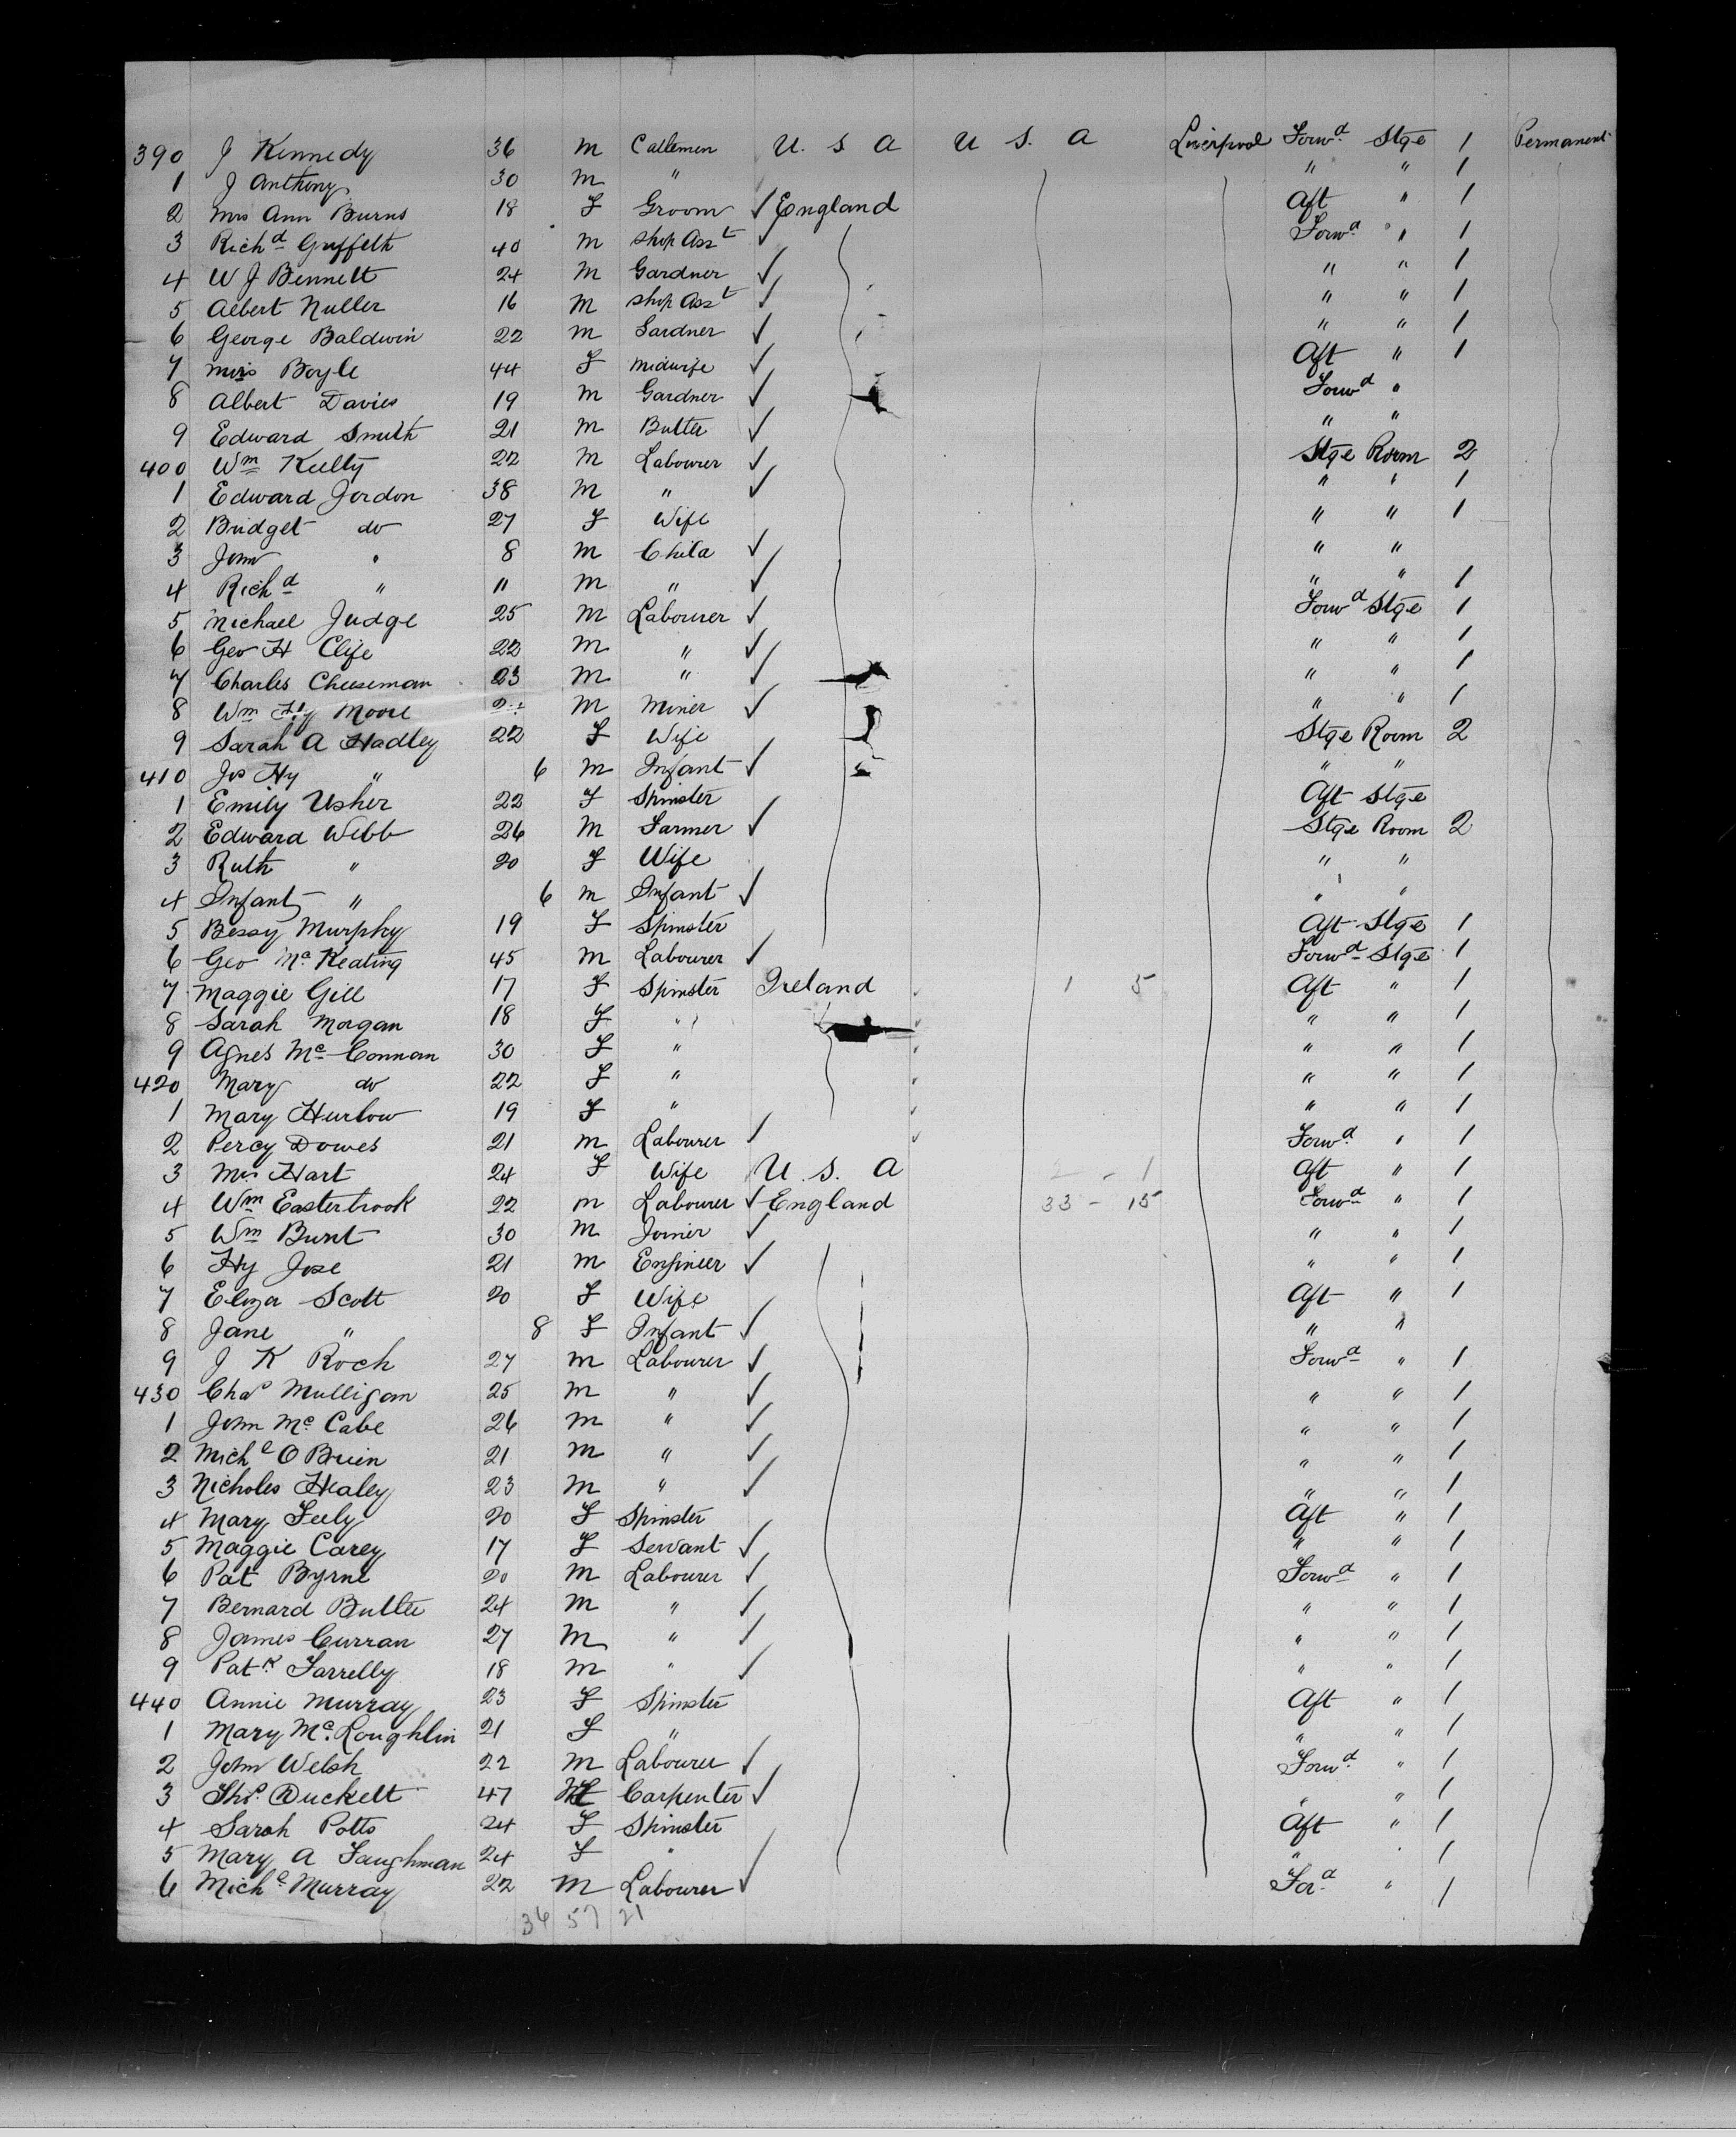 390 J Kennedy 36 m Cattlemen U. S A U S. A Liverpool Forwd Stge 1 Permanent
1 J Anthony 30 m " " " 1
2 Mrs Ann Burns 18 F Groom ✓ England Aft " 1
3 Richd Griffith 40 m Shop Asst ✓ Forwd " 1
4 W J Bennett 24 m Gardner ✓ " " 1
5 Albert Nuller 16 m Shop Asst ✓ " " 1
6 George Baldwin 22 m Gardner ✓ " " 1
7 Mrs Boyle 44 F Midwife ✓ Aft " 1
8 Albert Davies 19 m Gardner ✓ Forwd "
9 Edward Smith 21 m Butler ✓ " "
400 Wm Kielty 22 m Labourer ✓ Stge Room 2
1 Edward Jordon 38 m " ✓ " " 1
2 Bridget do 27 F Wife " " 1
3 John " 8 m Child ✓ " "
4 Richd " 11 m " ✓ " " 1
5 Michael Judge 25 m Labourer ✓ Forwd Stge 1
6 Geo H Clife 22 m " ✓ " " 1
7 Charles Cheeseman 23 m " ✓ " " 1
8 Wm Hy Moore m Miner ✓ " " 1
9 Sarah A Hadley 22 F Wife Stge Room 2
410 Jos Hy " 6 m Infant ✓ " "
1 Emily Usher 22 F Spinster Aft Stge
2 Edward Webb 26 m Farmer ✓ Stge Room 2
3 Ruth " 20 F Wife " "
4 Infant " 6 m Infant ✓ " "
5 Bessy Murphy 19 F Spinster Aft Stge 1
6 Geo Mc Keating 45 m Labourer ✓ Forwd Stge 1
7 Maggie Gill 17 F Spinster Ireland 1 5 Aft " 1
8 Sarah Morgan 18 F " " " 1
9 Agnes Mc Connan 30 F " " " 1
420 Mary do 22 F " " " 1
1 Mary Hurlow 19 F " " " 1
2 Percy Dowes 21 m Labourer ✓ Forwd " 1
3 Mrs Hart 24 F Wife U. S. A 2 - 1 Aft " 1
4 Wm Easterbrook 22 m Labourer ✓ England 33 - 15 Forwd " 1
5 Wm Burnt 30 m Joiner ✓ " " 1
6 Hy Jose 21 m Engineer ✓ " " 1
7 Eliza Scott 20 F Wife Aft " 1
8 Jane " 8 F Infant ✓ " "
9 J K Roch 27 m Labourer ✓ Forwd " 1
430 Chas Mulligan 25 m " ✓ " " 1
1 John Mc Cabe 26 m " ✓ " " 1
2 Michl O Brien 21 m " ✓ " " 1
3 Nicholes Healey 23 m " ✓ " " 1
4 Mary Feely 20 F Spinster Aft " 1
5 Maggie Carey 17 F Servant ✓ " " 1
6 Pat Byrne 20 m Labourer ✓ Forwd " 1
7 Bernard Butler 24 m " ✓ " " 1
8 James Curran 27 m " ✓ " " 1
9 Patk Farrelly 18 m " ✓ " " 1
440 Annie Murray 23 F Spinster Aft " 1
1 Mary Mc Loughlin 21 F " " " 1
2 John Welsh 22 m Labourer ✓ Forwd " 1
3 Thos Duckett 47 Carpenter ✓ " " 1
4 Sarah Potts 24 F Spinster Aft " 1
5 Mary A Faughman 24 F " " " 1
6 Michl Murray 22 m Labourer ✓ Ford " 1
36 57 21